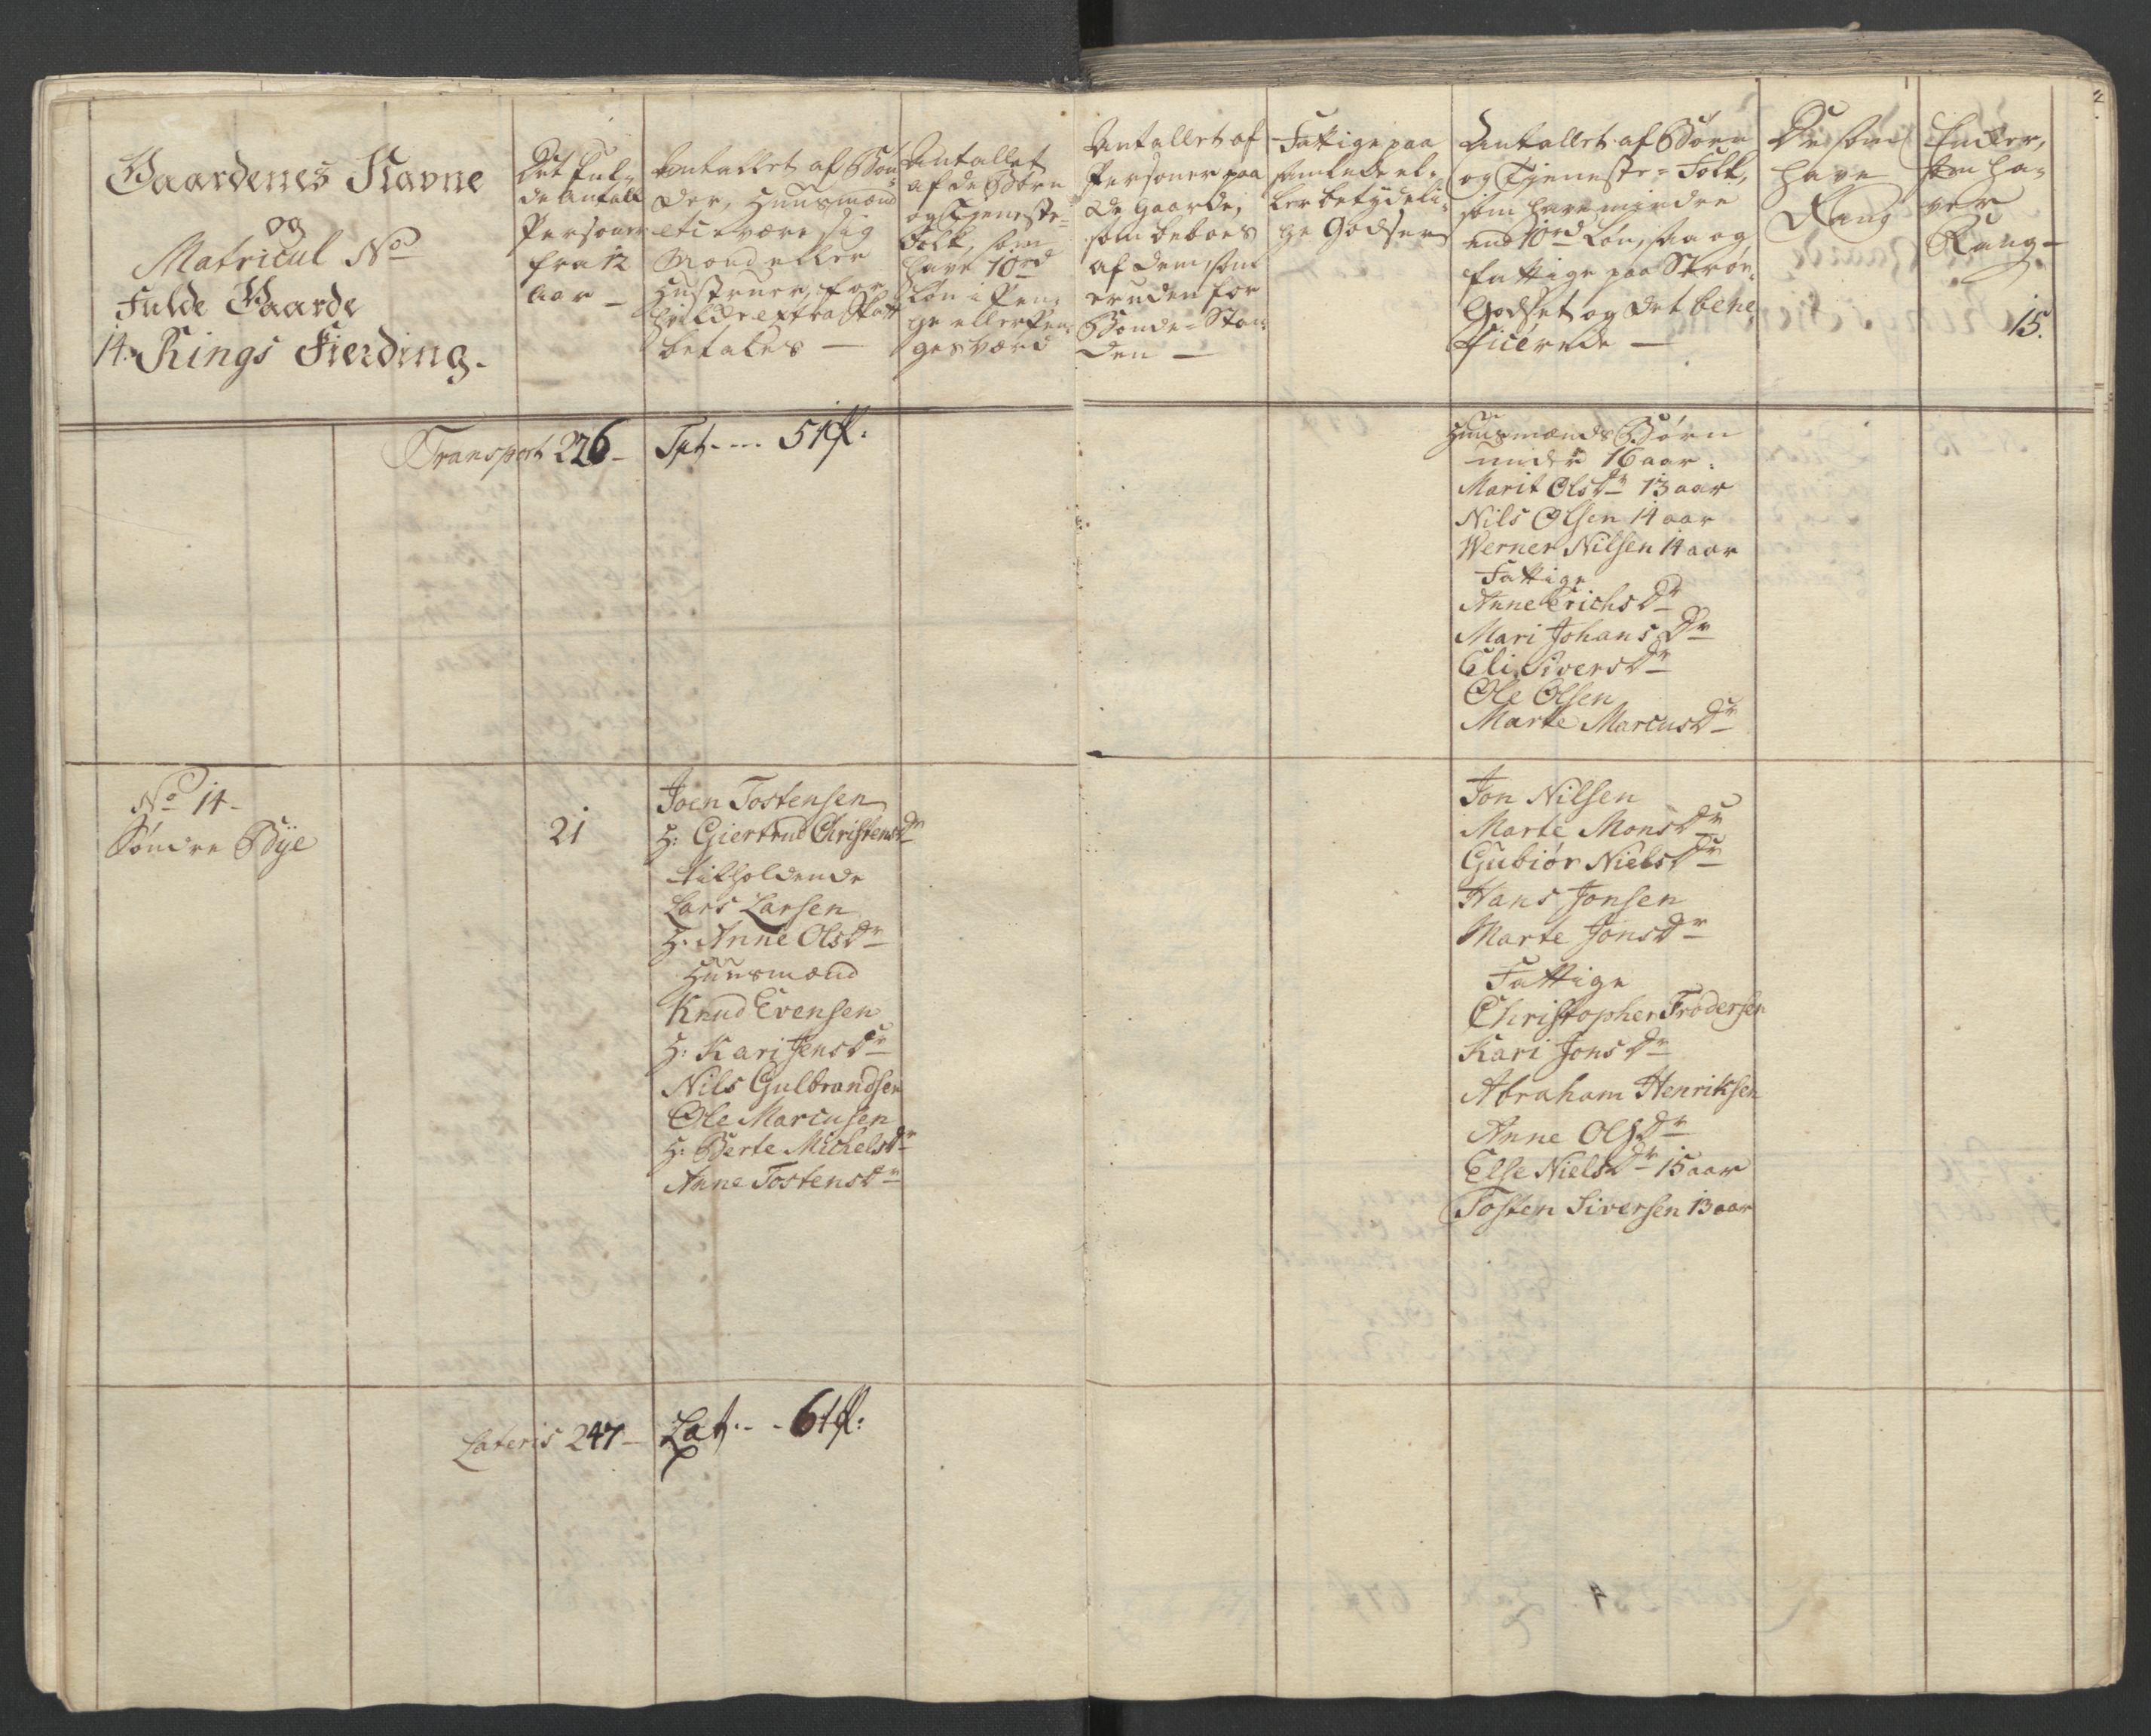 Gaardenes Navne
og
Matricul No
Fulde Gaarde
14. Rings Fierding.
Det ful-
de Antall
Personer
fra 12
Aar —
Antallet af Bøn-
der, Huusmænd
etc være sig
Mand eller
Hustruer, for
hvilke extra Skatt
betales —
Antallet
af de Børn
og Tjeneste-
Folk, som
have 10rd
Løn i Pen-
ge eller Pen-
ges værd
Antallet af
Personer paa
de Gaarde,
som beboes
af dem, som
er uden for
Bonde-Stan-
den —
Fattige paa
samlede el-
ler betydeli-
ge Godser
Antallet af Børn
og Tjeneste-Folk,
som have mindre
end 10rd Løn, saa og
fattige paa Strøe-
Godset og det bene-
ficerede —
De som
have
Rang
Enker,
som ha-
ver
Rang —
15.
Transport 226 —
Tpt. --- 51 f:
Huusmænds Børn
under 16 aar:
Marit Olsdr 13 aar
Nils Olsen 14 aar
Werner Nilsen 14 aar
Fattige
Anne Erichsdr
Mari Johansdr
Eli Siversdr
Ole Olsen
Marte Marcusdr
No 14 -
Søndre Bye
21
Joen Tostensen
H: Giertrud Christensdr
tilholdende
Lars Larsen
H: Anne Olsdr
Huusmænd
Knud Evensen
H: Kari Jensdr
Nils Gulbrandsen
Ole Marcusen
H: Berte Michelsdr
Anne Tostensdr
Jon Nilsen
Marte Monsdr
Gubiør Nielsdr
Hans Jonsen
Marte Jonsdr
Fattige
Christopher Frodersen
Kari Jonsdr
Abraham Henriksen
Anne Olsdr
Else Nielsdr 15 aar
Tosten Siversen 13 aar
Lateris 247 —
Lat. - - 61 f: